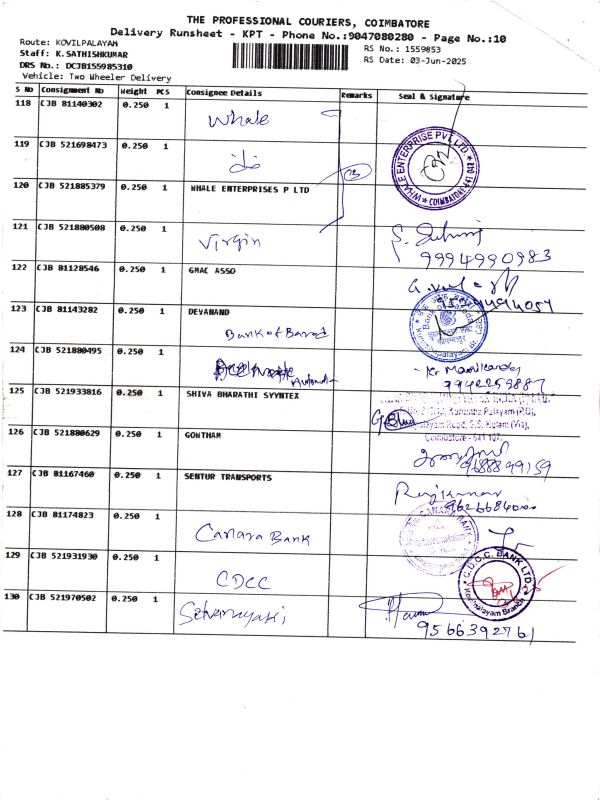 THE PROFESSIONAL COURIERS, COIMBATORE
Delivery Runsheet - KPT - Phone No.:9047080280 - Page No.:10
Route: KOVILPALAYAM
RS No.: 1559853
Staff: K.SATHISHKUMAR
RS Date: 03-Jun-2025
DRS No.: DCJB155985310
Vehicle: Two Wheeler Delivery
S No Consignment No Weight PCS Consignee Details Remarks Seal & Signature
118 CJB 81140302 0.250 1 Whale
119 CJB 521698473 0.250 1 do
WHALE ENTERPRISE PVT LTD
COIMBATORE-641 012
120 CJB 521885379 0.250 1 WHALE ENTERPRISES P LTD
121 CJB 521880508 0.250 1 Virgin
9994990983
122 CJB 81128546 0.250 1 GMAC ASSO
123 CJB 81143282 0.250 1 DEVANAND
Bank of Barod
Bank of Baroda
124 CJB 521880495 0.250 1 Automat
Kr Manikandan
7942259887
125 CJB 521933816 0.250 1 SHIVA BHARATHI SYYNTEX
Palayam (P.O),
Road, S.S. Kulam (Via),
Coimbatore - 641 107.
126 CJB 521880629 0.250 1 GONTHAM
9688899159
127 CJB 81167460 0.250 1 SENTUR TRANSPORTS
Rajkumar
128 CJB 81174823 0.250 1 Canara Bank
CANARA BANK
129 CJB 521931930 0.250 1 CDCC
C.D.C.C. BANK LTD
Kovilpalayam Branch
130 CJB 521970502 0.250 1 Selvanayaki
9566392761